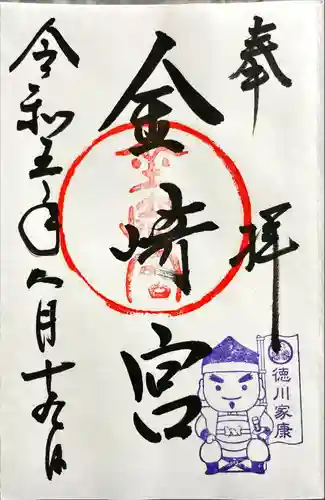 奉拝
金崎宮
徳川家康
令和五年八月十九日